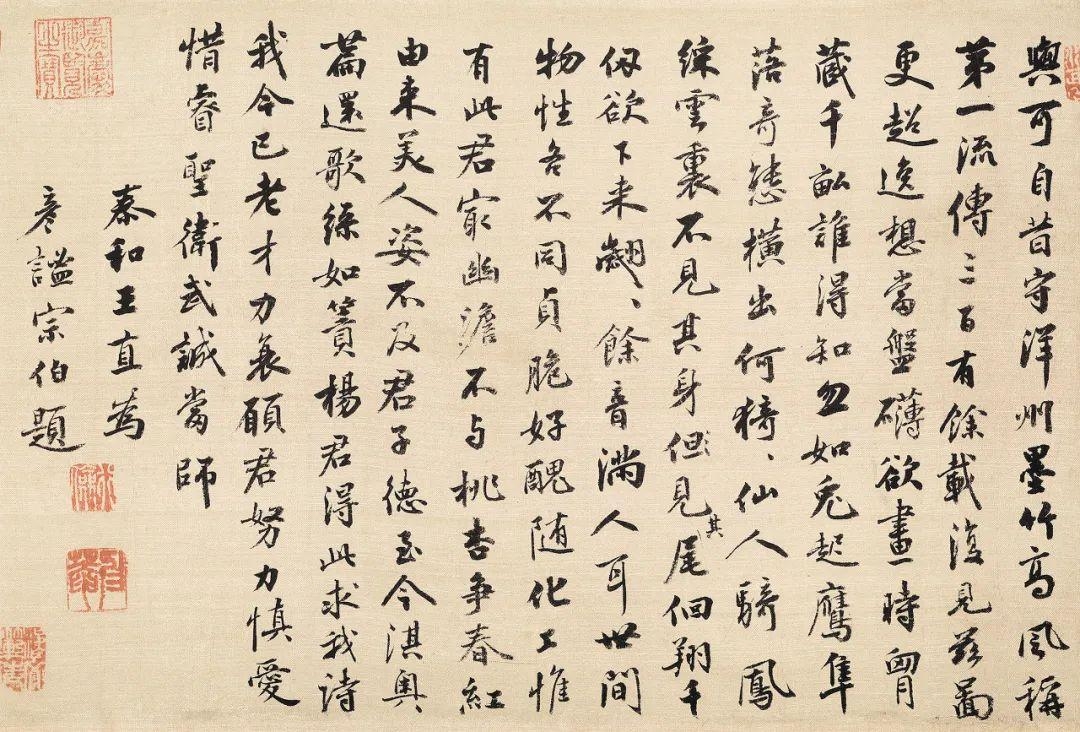 與可自昔守洋州墨竹高風稱
第一流傳三百有餘載復見茲圖
更超逸想當盤礴欲畫時胷
藏千畝誰得知忽如兔起鷹隼
落奇態橫出何猗〻仙人騎鳳
綵雲裏不見其身但見其尾佪翔千
仭欲下来翽〻餘音滿人耳世間
物性各不同貞脆好醜随化工惟
有此君㝡幽澹不与桃杏争春紅
由来美人姿不及君子德至今淇奥
篇還歌綠如簀楊君得此求我詩
我今已老才力衰願君努力慎愛
惜睿聖衛武誠當師
泰和王直為
彥謐宗伯題
嘉慶御覽之寶